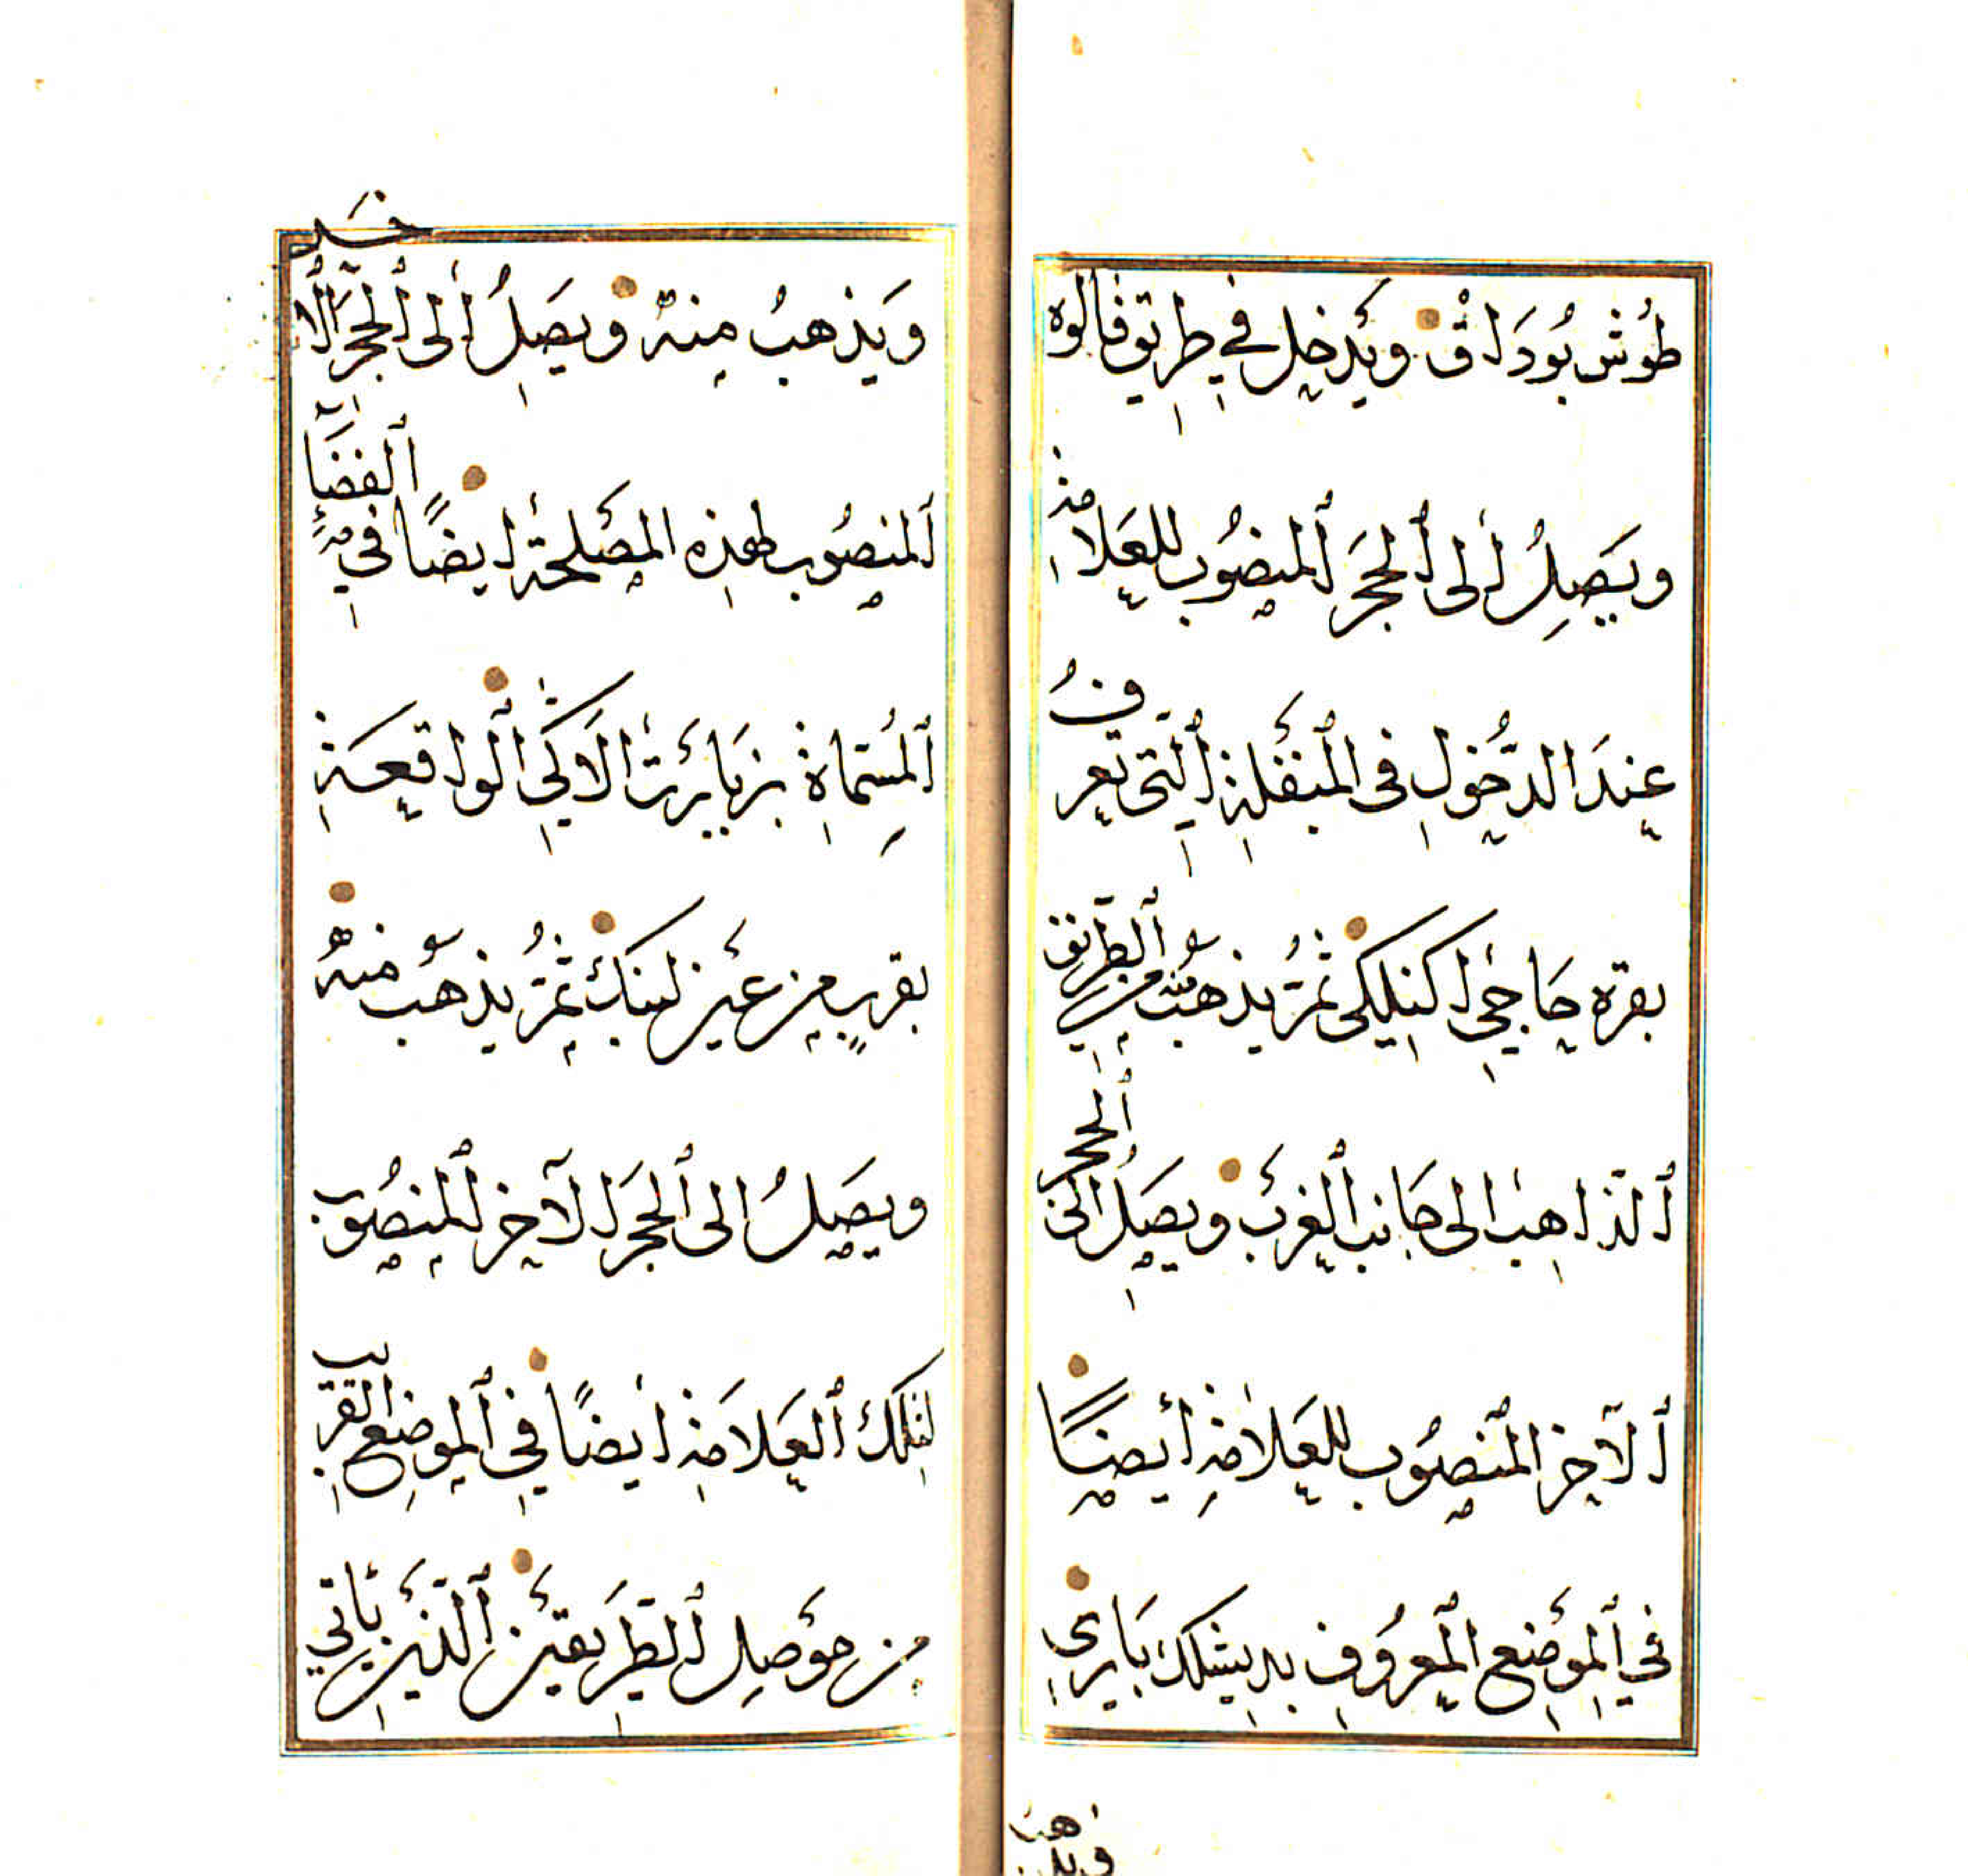 طُوش بُودَاقْ وَيَدْخِلُ فِي طَرِيقِ قَالُوه
وَيَصِلُ إِلَى ٱلْحَجَرِ ٱلْمَنْصُوبِ لِلعَلَامَةِ
عِندَ الدُّخُولِ فِى الْمَنْفَلَةِ ٱلَّتِى تُعرَفُ
بقره حَاجِى اكنلكى ثُمَّ يَذهَبُ مِنَ ٱلطَّرِيقِ
ٱلذَّاهِبِ الى جَانِبِ ٱلْغَرْبِ وَيَصِلُ الَى ٱلحَجَرِ
ٱلآخِرِ المَنْصُوبِ لِلعَلَامَةِ أَيْضًا
فِي ٱلْمَوْضِعِ الْمَعْرُوفِ بديشكك بَايِرِى
وَيَذهَبُ
وَيَذهبُ مِنهُ وَيَصِلُ إِلَى ٱلْحَجَرِ ٱلْآخَرِ
ٱلْمَنصُوبِ لِهٰذِهِ المَصْلَحَةِ أَيضًا فِي ٱلفَضَاءِ
ٱلْمُسَمَّاةِ ٱلْوَاقِعَةِ
بقربٍ مِن ثُمَّ يَذهَبُ مِنهُ
وَيَصِلُ الى ٱلْحَجَرِ الآخِرِ ٱلْمَنصُوبِ
لِتِلكَ ٱلْعَلَامَةِ أَيضًا فِي ٱلْمَوضِعِ القَرِيبِ
مِن مَوْصِلِ ٱلطَّرِيقَيْنِ ٱلَّذَيْنِ يَأتِي